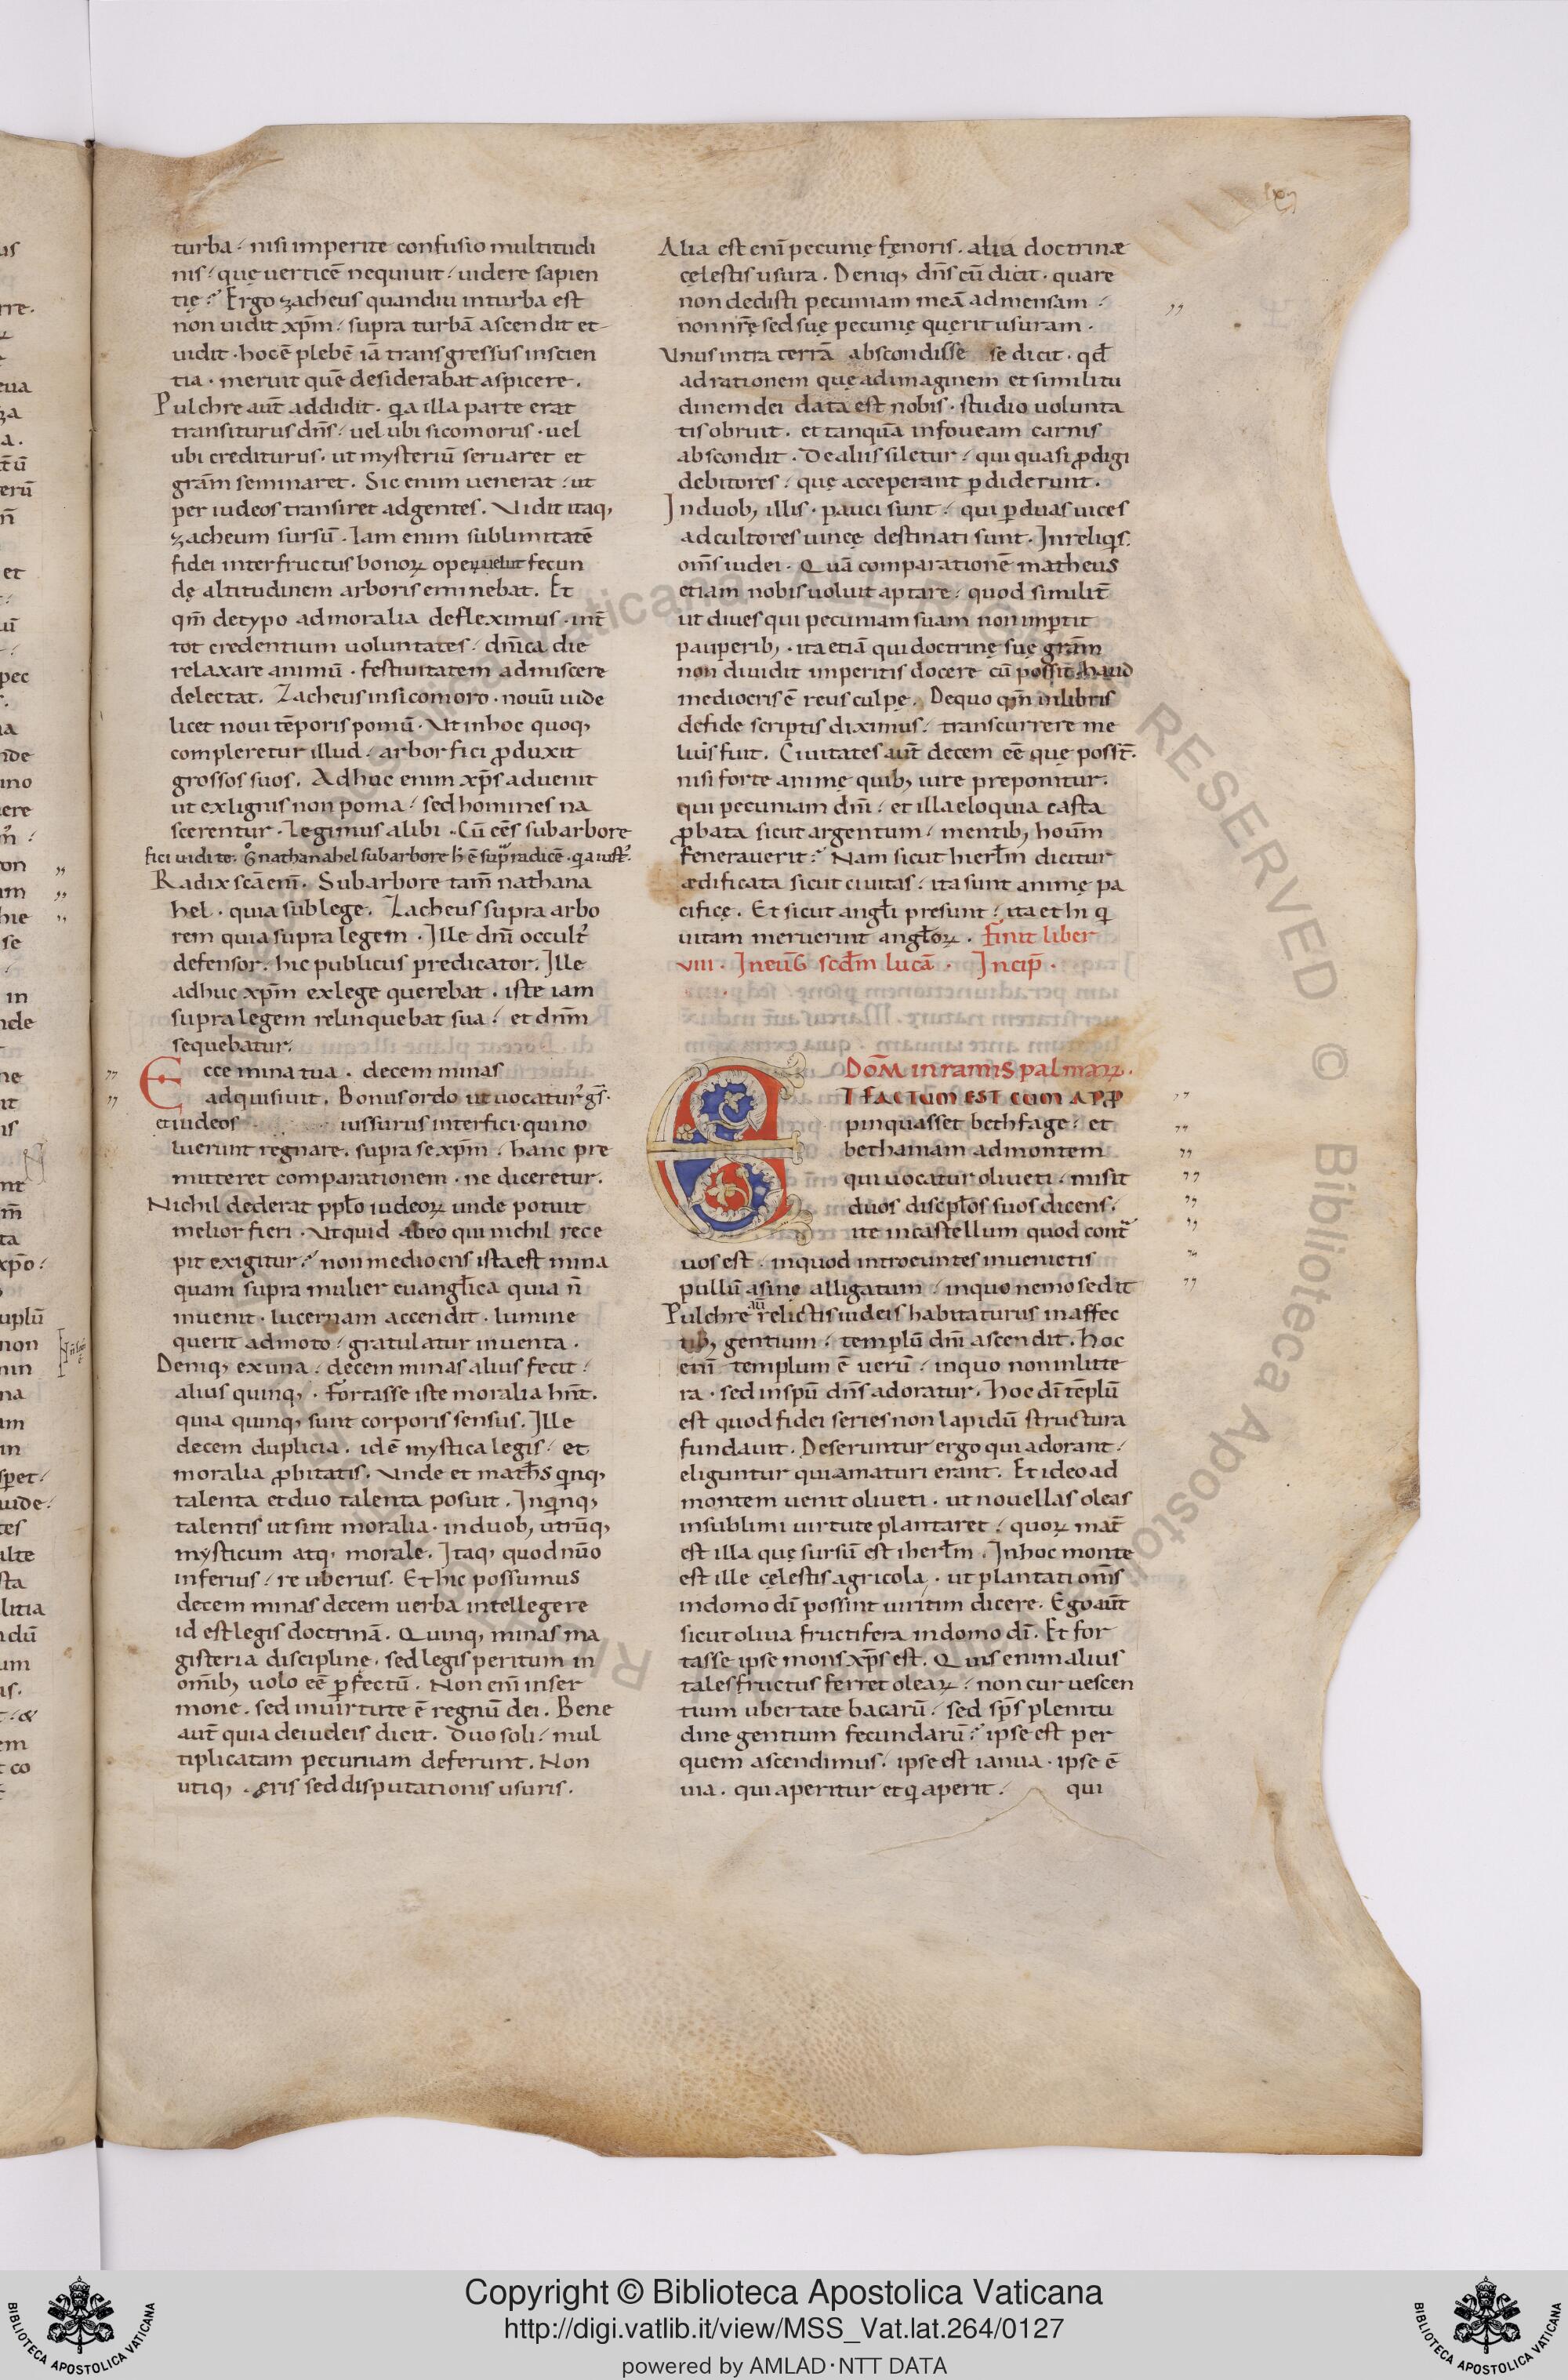 turba. nisi imperite confusio multitudi
nis. quę uerticē nequiuit. uidere sapien
tię? Ergo zacheus quandiu inturba est
non uidit xp̄m. supra turbā ascendit et
uidit. hoc ē plebē iā transgressus inscien
tia. meruit quē desiderabat aspicere.
Pulchre aut̄ addidit. qa illa parte erat
transiturus dn̄s. uel ubi sicomorus. uel
ubi crediturus. ut mysteriū seruaret et
grām seminaret. Sic enim uenerat. ut
per iudeos transiret adgentes. Vidit itaq;
zacheum sursū. Iam enim sublimitatē
fidei inter fructus bonoꝝ operū uelut fecun
dę altitudinem arboris eminebat. Et
qm̄ detypo admoralia defleximus. int̄
tot credentium uoluntates. dn̄ica die
relaxare animū. festiuitatem admiscere
delectat. Zacheus insicomoro. nouū uide
licet noui tēporis pomū. Vt inhoc quoq;
compleretur illud. arbor fici ꝓduxit
grossos suos. Adhuc enim xp̄s aduenit
ut exlignis non poma. sed homines na
scerentur. Legimus alibi. Cū eēs subarbore
fici uidi te. G̊ nathanahel subarbore h̄ ē sup̄ radicē. qa iust᾽.
Radix scā eni᷑. Subarbore tam̄ nathana
hel. quia sub lege. Zacheus supra arbo
rem quia supra legem. Ille dn̄i occult᾽
defensor. hic publicus predicator. Ille
adhuc xp̄m exlege querebat. iste iam
supra legem relinquebat sua. et dnm̄
sequebatur.
Ecce mina tua. decem minas
adquisiuit. Bonus ordo ut uocatur᾽ gs̄.
et iudeos iussurus interfici. qui no
luerunt regnare. supra se xp̄m. hanc pre
mitteret comparationem. ne diceretur.
Nichil dederat pplo iudeoꝝ unde potuit
melior fieri. Vt quid abeo qui nichil rece
pit exigitur? non mediocris ista est mina
quam supra mulier euangl̄ica quia n̄
inuenit. lucernam accendit. lumine
querit admoto. gratulatur inuenta.
Deniq; ex una. decem minas alius fecit.
alius quinq;. fortasse iste moralia hn̄t.
quia quinq; sunt corporis sensus. Ille
decem duplicia. id ē mystica legis. et
moralia ꝓbitatis. Vnde et math̄s qinq;
talenta et duo talenta posuit. In qinq;
talentis ut sint moralia. induob; utrūq;
mysticum atq; morale. Itaq; quod nūo
inferius. re uberius. Et hic possumus
decem minas decem uerba intellegere
id est legis doctrinā. Quinq; minas ma
gisteria discipline. sed legis peritum in
om̄ib; uolo eē ꝑfectū. Non eni᷑ inser
mone. sed inuirtute ē regnū dei. Bene
aut̄ quia deiudeis dicit. Duo soli. mul
tiplicatam pecuniam deferunt. Non
utiq; ęris sed disputationis usuris.
Alia est eni᷑ pecunię fęnoris. alia doctrinæ
cęlestis usura. Deniq; dn̄s cū dicit. quare
non dedisti pecuniam meā ad mensam.
non nr̄ę sed suę pecunię querit usuram.
Vnus intra terrā abscondisse se dicit. qd̄
ad rationem quę ad imaginem et similitu
dinem dei data est nobis. studio uolunta
tis obruit. et tanquā infoueam carnis
abscondit. De aliis siletur. qui quasi ꝓdigi
debitores. quę acceperant ꝑdiderunt.
Induob; illis. pauci sunt. qui ꝑduas uices
ad cultores uineę destinati sunt. Inreliqis.
om̄s iudei. Quā comparationē matheus
etiam nobis uoluit aptare. quod similit̄
ut diues qui pecuniam suam non imꝑtit
pauperib;. ita etiā qui doctrinę suę grām
non diuidit imperitis docere cū possit. haud
mediocris ē reus culpę. Dequo qm̄ inlibris
defide scriptis diximus. transcurrere me
luis fuit. Ciuitates aut̄ decem eē quę possт̄.
nisi forte animę quib; iure preponitur.
qui pecuniam dn̄i. et illa eloquia casta
ꝓbata sicut argentum. mentib; houm̄
fenerauerit? Nam sicut hierl̄m dicitur
ædificata sicut ciuitas. ita sunt animę pa
cificę. Et sicut angl̄i presunt. ita et hi qi
uitam meruerint angl̄oꝝ. Finit liber
VIII. In eu̅g̅ scd̄m lucā. Incip̄.
DOM̄ in ramis palmaꝝ.
ET FACTUM EST CUM APꝒ
pinquasset bethfage. et
bethaniam ad montem
qui uocatur oliueti. misit
duos discpl̄os suos dicens.
ite in castellum quod cont᷑
uos est. inquod introeuntes inuenietis
pullū asinę alligatum. inquo nemo sedit
Pulchre aū relictis iudeis habitaturus in affec
tib; gentium. templū dn̄i ascendit. hoc
eni᷑ templum ē uerū. inquo non in litte
ra. sed inspū dn̄s adoratur. hoc dī tēplū
est quod fidei series non lapidū structura
fundauit. Deseruntur ergo qui adorant.
eliguntur qui amaturi erant. Et ideo ad
montem uenit oliueti. ut nouellas oleas
insublimi uirtute plantaret. quoꝝ mat̄
est illa quę sursū est iherl̄m. Inhoc monte
est ille cęlestis agricola. ut plantati om̄s
indomo dī possint uiritim dicere. Ego aūt
sicut oliua fructifera indomo dī. Et for
tasse ipse mons xp̄s est. Quis enim alius
tales fructus ferret oleaꝝ. non curuescen
tium ubertate bacarū. sed sp̄s plenitu
dine gentium fecundarū? ipse est per
quem ascendimus. ipse est ianua. ipse ē
uia. qui aperitur et qi aperit. qui
Copyright © Biblioteca Apostolica Vaticana
http://digi.vatlib.it/view/MSS_Vat.lat.264/0127
powered by AMLAD·NTT DATA
BIBLIOTECA APOSTOLICA VATICANA
BIBLIOTECA APOSTOLICA VATICANA